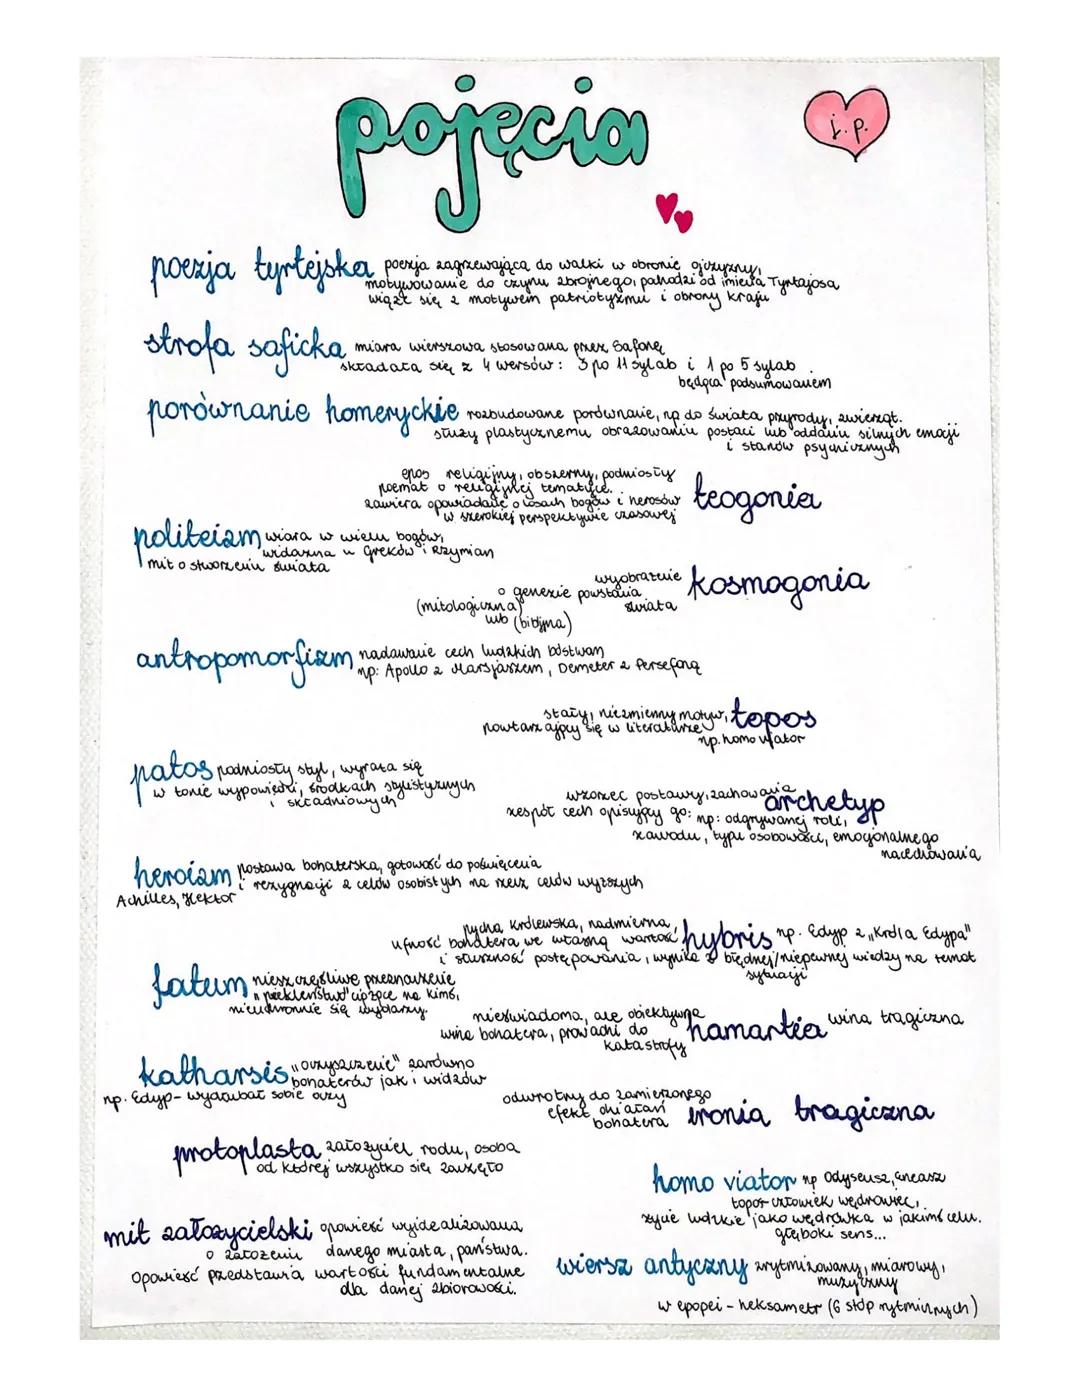 pojęcia
j.p.
poezja tyrtejska poezja zagrzewająca do walki w obronie ojczyzny,
motywowanie do czynu zbrojnego, pohodzi od imienia Tyrtajosa
wiąże się z motywem patriotyzmu i obrony kraju
strofa saficka miara wierszowa stosowana przez Safonę
składała się z 4 wersów: 3 po 11 sylab i 1 po 5 sylab
będąca podsumowaniem
porównanie homeryckie rozbudowane porównanie, np do świata przyrody, zwierząt.
służy plastycznemu obrazowaniu postaci lub oddaniu silnych emocji
i stanów psychicznych
epos religijny, obszerny, podniosły
poemat o religijnej tematyce.
zawiera opowiadanie o losach bogów i herosów
w szerokiej perspektywie czasowej
teogonia
politeizm wiara w wielu bogów,
widoczna u Greków i Rzymian
mit o stworzeniu świata
wyobrażenie
o genezie powstania
świata
(mitologiczna)
lub (biblijna)
kosmogonia
antropomorfizm nadawanie cech ludzkich bóstwom
np: Apollo z Marsjaszem, Demeter z Persefoną
stały, niezmienny motyw,
powtarzający się w literaturze
topos
np. homo viator
patos podniosły styl, wyraża się
w tonie wypowiedzi, środkach stylistycznych
i składniowych
wzorzec postawy, zachowania
archetyp
zespół cech opisujący go: np: odgrywanej roli,
zawodu, typu osobowości, emocjonalnego
nacechowania
heroizm postawa bohaterska, gotowość do poświęcenia
i rezygnacji z celów osobistych na rzecz celów wyższych
Achilles, Hektor
pycha królewska, nadmierna
ufność bohatera we własną wartość
hybris np. Edyp z „Króla Edypa"
i słuszność postępowania, wynika z błędnej/niepewnej wiedzy na temat
sytuacji
fatum nieszczęśliwe przeznaczenie
"przekleństwo" ciążące na kimś,
nieuchronnie się wydarzy.
nieświadoma, ale obiektywna
wina bohatera, prowadzi do
katastrofy
hamartia wina tragiczna
katharsis „oczyszczenie" zarówno
bohaterów jak i widzów
np. Edyp - wydłubał sobie oczy
odwrotny do zamierzonego
efekt działań
bohatera
ironia tragiczna
protoplasta założyciel rodu, osoba
od której wszystko się zaczęło
homo viator np Odyseusz, Eneasz
topos człowiek wędrowiec,
życie ludzkie jako wędrówka w jakimś celu.
głęboki sens...
mit założycielski opowieść wyidealizowana
o założeniu danego miasta, państwa.
Opowieść przedstawia wartości fundamentalne
dla danej zbiorowości.
wiersz antyczny zrytmizowany, miarowy,
muzyczny
w epopei - heksametr (6 stóp rytmicznych)